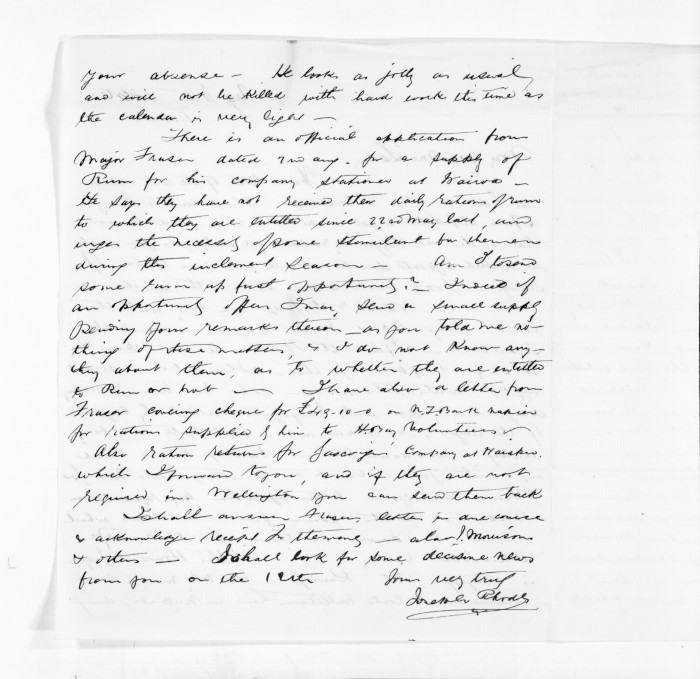 your absense — He looks as jolly as usual,
and will not be killed with hard work this time as
the calendar is very light —
There is an official application from
Major Fraser dated 2nd Aug. for a supply of
Rum for his company stationed at Wairoa —
He says they have not received their daily rations of rum
to which they are entitled since 22nd May last, and
urges the necessity of some stimulant for the men
during this inclement season — Am I to send
some rum up first opportunity? — Indeed if
an opportunity offers I may send a small supply
pending your remarks thereon — as you told me no-
thing of these matters, & I do not know any-
thing about them, as to whether they are entitled
to Rum or not — I have also a letter from
Fraser covering cheque for £49-10-0. on N.Z. Bank Napier
for rations supplied by him to H. Bay Volunteers
Also ration returns for Gascoynes Company at
which I forward to you, and if they are not
required in Wellington you can send them back
I shall answer Frasers letter in due course
& acknowledge receipt of the money — also J. Morrisons
& others — I shall look for some decisive news
from you on the 12th Yours very truly
Joseph Rhodes